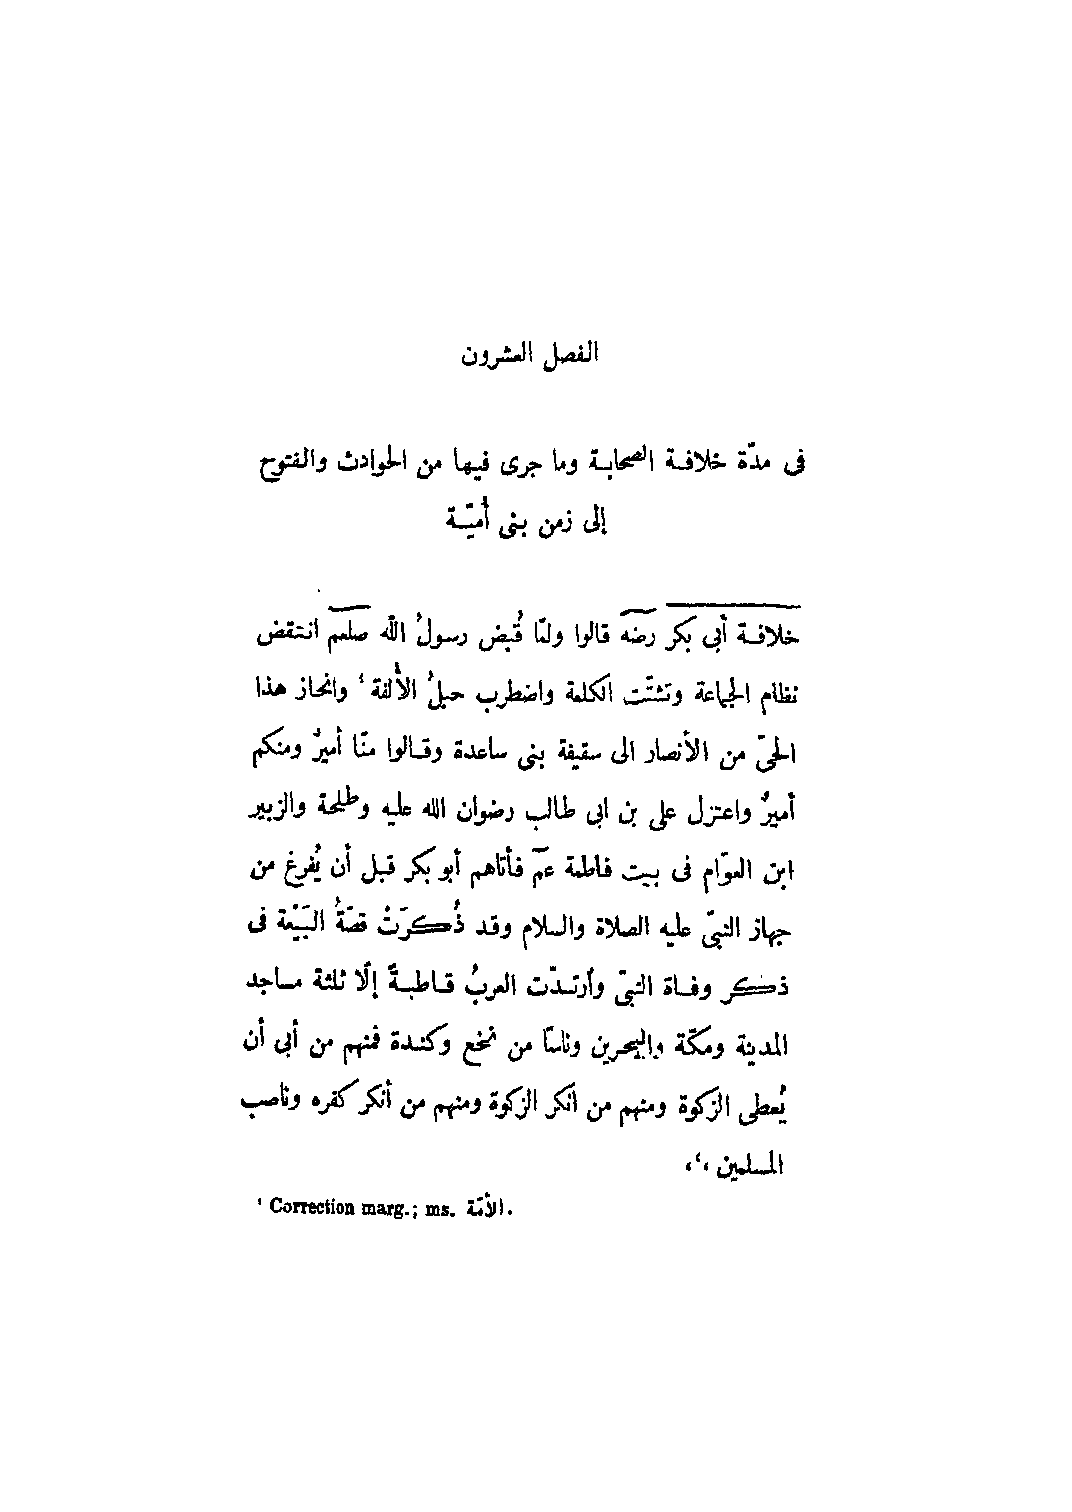 الفصل العشرون
فى مدّة خلافة الصحابة وما جرى فيها من الحوادث والفتوح
إلى زمن بنى أميّة
خلافة أبى بكر رضه قالوا ولمّا قُبض رسولُ الله صلعم انتقض
نظام الجماعة وتشتّت الكلمة واضطرب حبلُ الألفة ¹ وانحاز هذا
الحىّ من الأنصار الى سقيفة بنى ساعدة وقالوا منّا أميرٌ ومنكم
أميرٌ واعتزل على بن ابى طالب رضوان الله عليه وطلحة والزبير
ابن العوّام فى بيت فاطمة عم فأتاهم أبو بكر قبل أن يُفرغ من
جهاز النبىّ عليه الصلاة والسلام وقد ذُكرَتْ قصّةُ البَيْعة فى
ذكر وفاة النبىّ وأرتدّت العربُ قاطبةً إلّا ثلثة مساجد
المدينة ومكّة والبحرين وناسًا من نخع وكندة فمنهم من أبى أن
يُعطى الزكوة ومنهم من أنكر الزكوة ومنهم من أنكر كفره وناصب
المسلمين ،'،
¹ Correction marg.; ms. الأمّة.